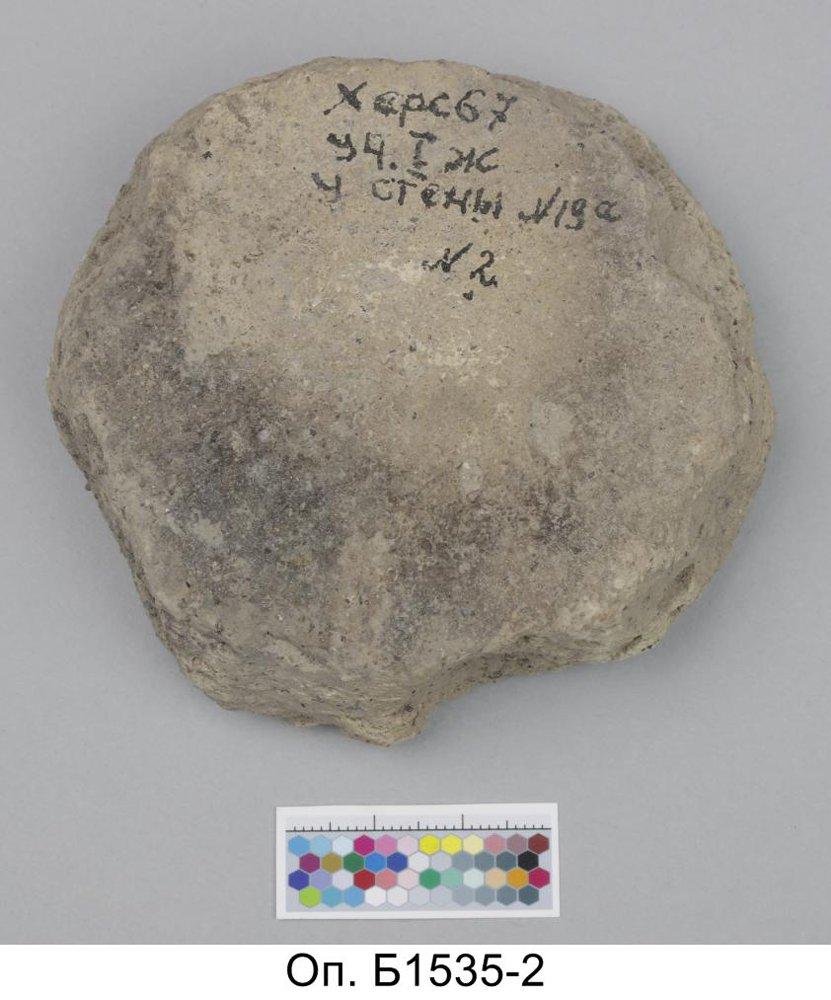 Херс67
уч. I ж
у стены N19а
N 2
Оп. Б1535-2